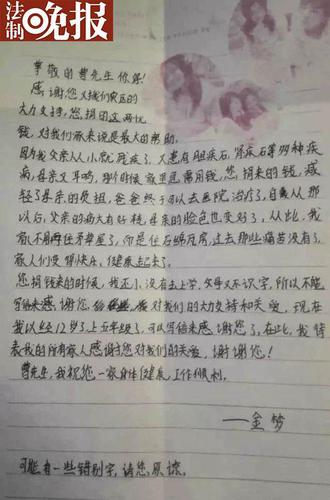 法制晚报
尊敬的曹先生你好!
感谢您对我们家的
大力支持,您捐的这两比
钱,对我们家来说是最大的帮助.
因为我父亲从小就残疾了,又患有胆尿石,肾尿石等两种疾
病,母亲又耳聋,那时候家里急需用钱,您捐来的钱,减
轻了母亲的负担,爸爸终于可以去医院治疗了,自从那
以后,父亲的病大有好转,母亲的脸色也变好了,从此,我
家不用再住茅草屋了,而是住石绵瓦房,过去那些痛苦没有了,
家人们变得快乐,健康起来了.
您捐钱来的时候,我还小,没有去上学,父母又不识字,所以不能
写信来感谢您,对我们的大力支持和关爱,现在
我以经12岁了,上五年级了,可以写信来感谢您了,在此,我代
表我的所有家人感谢您对我们的关爱,谢谢您!
曹先生,我祝您一家身体健康,工作顺利.
——金梦
可能有一些错别字,请您原谅.